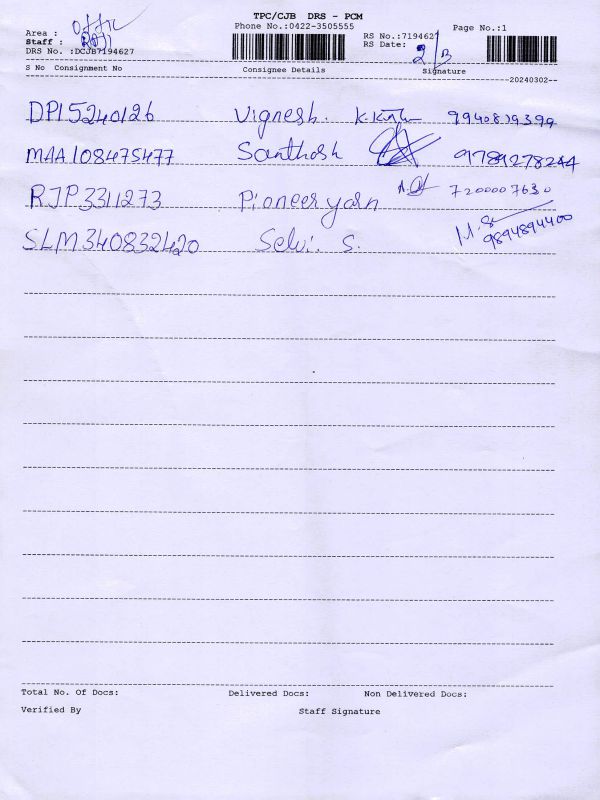 TPC/CJB DRS - PCM
Phone No.:0422-3505555 Page No.:1
Area : Office
Staff :
DRS No. :DCJB7194627
RS No.:7194627
RS Date: 2/3
S No Consignment No Consignee Details Signature
20240302--
DPI5240126 Vignesh. 9940819399
MAA108475477 Santhosh 9789278244
RJP3311273 Pioneer yarn 7200007630
SLM340832420 Selvi. S. 9894894400
Total No. Of Docs: Delivered Docs: Non Delivered Docs:
Verified By Staff Signature